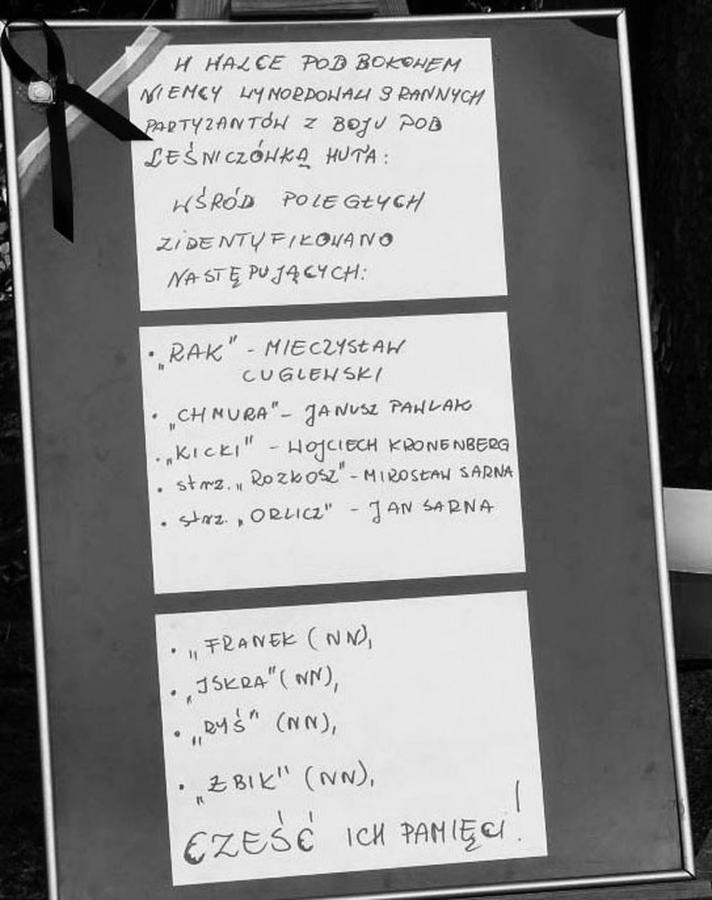 W WALCE POD BOKOWEM
NIEMCY WYMORDOWALI 9 RANNYCH
PARTYZANTÓW Z BOJU POD
LEŚNICZÓWKĄ HUTA:
WŚRÓD POLEGŁYCH
ZIDENTYFIKOWANO
NASTĘPUJĄCYCH:
• „RAK" - MIECZYSŁAW
CUGLEWSKI
• „CHMURA" - JANUSZ PAWLAK
• „KICKI" - WOJCIECH KRONENBERG
• strz. „ROZKOSZ" - MIROSŁAW SARNA
• strz. „ORLICZ" - JAN SARNA
• „FRANEK (NN),
• „ISKRA" (NN),
• „RYŚ" (NN),
• „ŻBIK" (NN),
CZEŚĆ ICH PAMIĘCI!